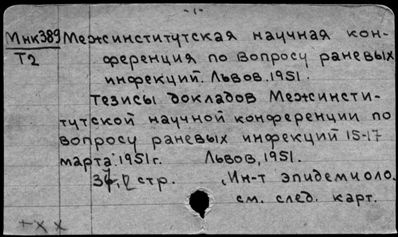 - 1 -
Мнк389 Межинститутская научная кон-
Т2 ференция по вопросу раневых
инфекций. Львов. 1951.
Тезисы докладов Межинсти-
тутской научной конференции по
вопросу раневых инфекций 15-17
марта 1951 г. Львов, 1951.
стр. (Ин-т эпидемиоло.
см. след. карт.